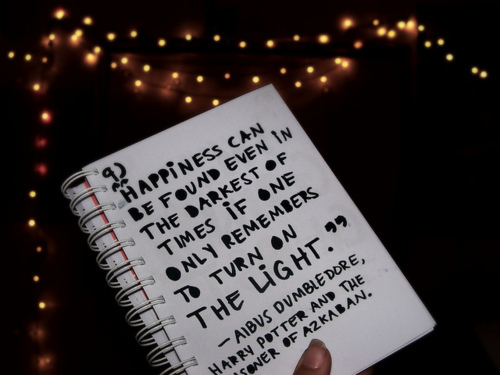 9)
"HAPPINESS CAN
BE FOUND EVEN IN
THE DARKEST OF
TIMES IF ONE
ONLY REMEMBERS
TO TURN ON
THE LIGHT."
- AlBUS DUMBLEDORE,
HARRY POTTER AND THE
ISONER OF AZKABAN.